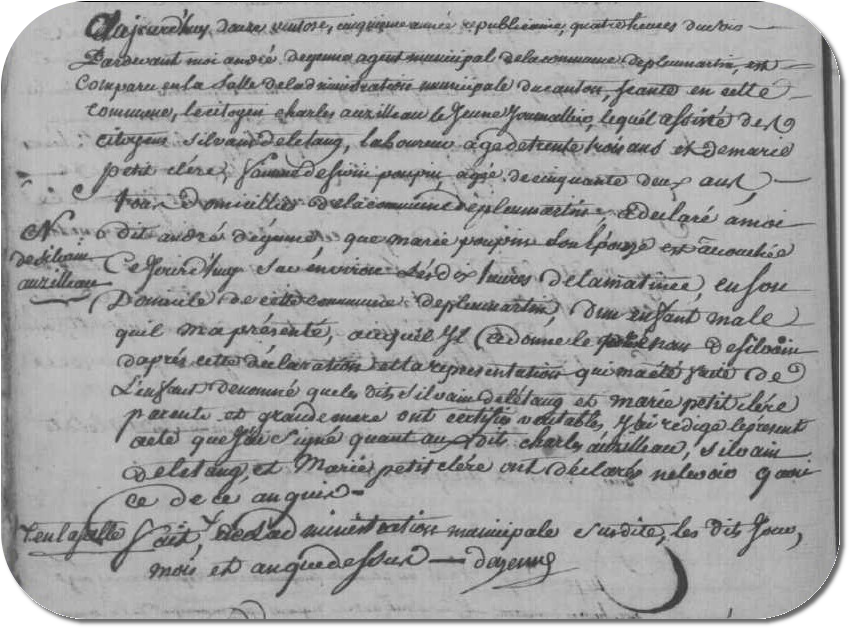 aujourd'huy douze ventose, cinquieme année republicaine, quatre heures du soir
Pardevant moi andré deyenne agent municipal de la commune depleumartin, est
Comparu en la Salle de ladministration municipale du canton, Seante en cette
commune, le citoyen charles auzilleau le Jeune Journallier, lequel assisté de
citoyens silvain deletang, laboureur agé de trente trois ans et de marie
petit clére, famme de poupin, agée de cinquante deux ans,
tous Domicilliés de la commune depleumartin, a declaré a moi
dit andré deyenne, que marie poupin Son Epouze est accouchée
N
de silvain
auzilleau
Ce Jourdhuy Sur environ les dix heures de la matinée, en son
Domicile de cette commune depleumartin, d'un enfant male
quil m'a présenté, auquel il a donné le prénom de silvain
dapres cette déclaration et la representation qui ma été faite de
L'enfant denommé que les dits silvain deletang et marie petit clére
parente et grande mere ont certifiés veritables, J'ai rédigé le present
acte que J'ai Signé quant aux dit charles auzilleau, silvain
deletang, et Marie petit clére ont déclarés ne Savoir
ce de ce anquis
en la salle
fait, de Ladministration municipale Susdite, les dits Jour,
mois et an que dessus — deyenne